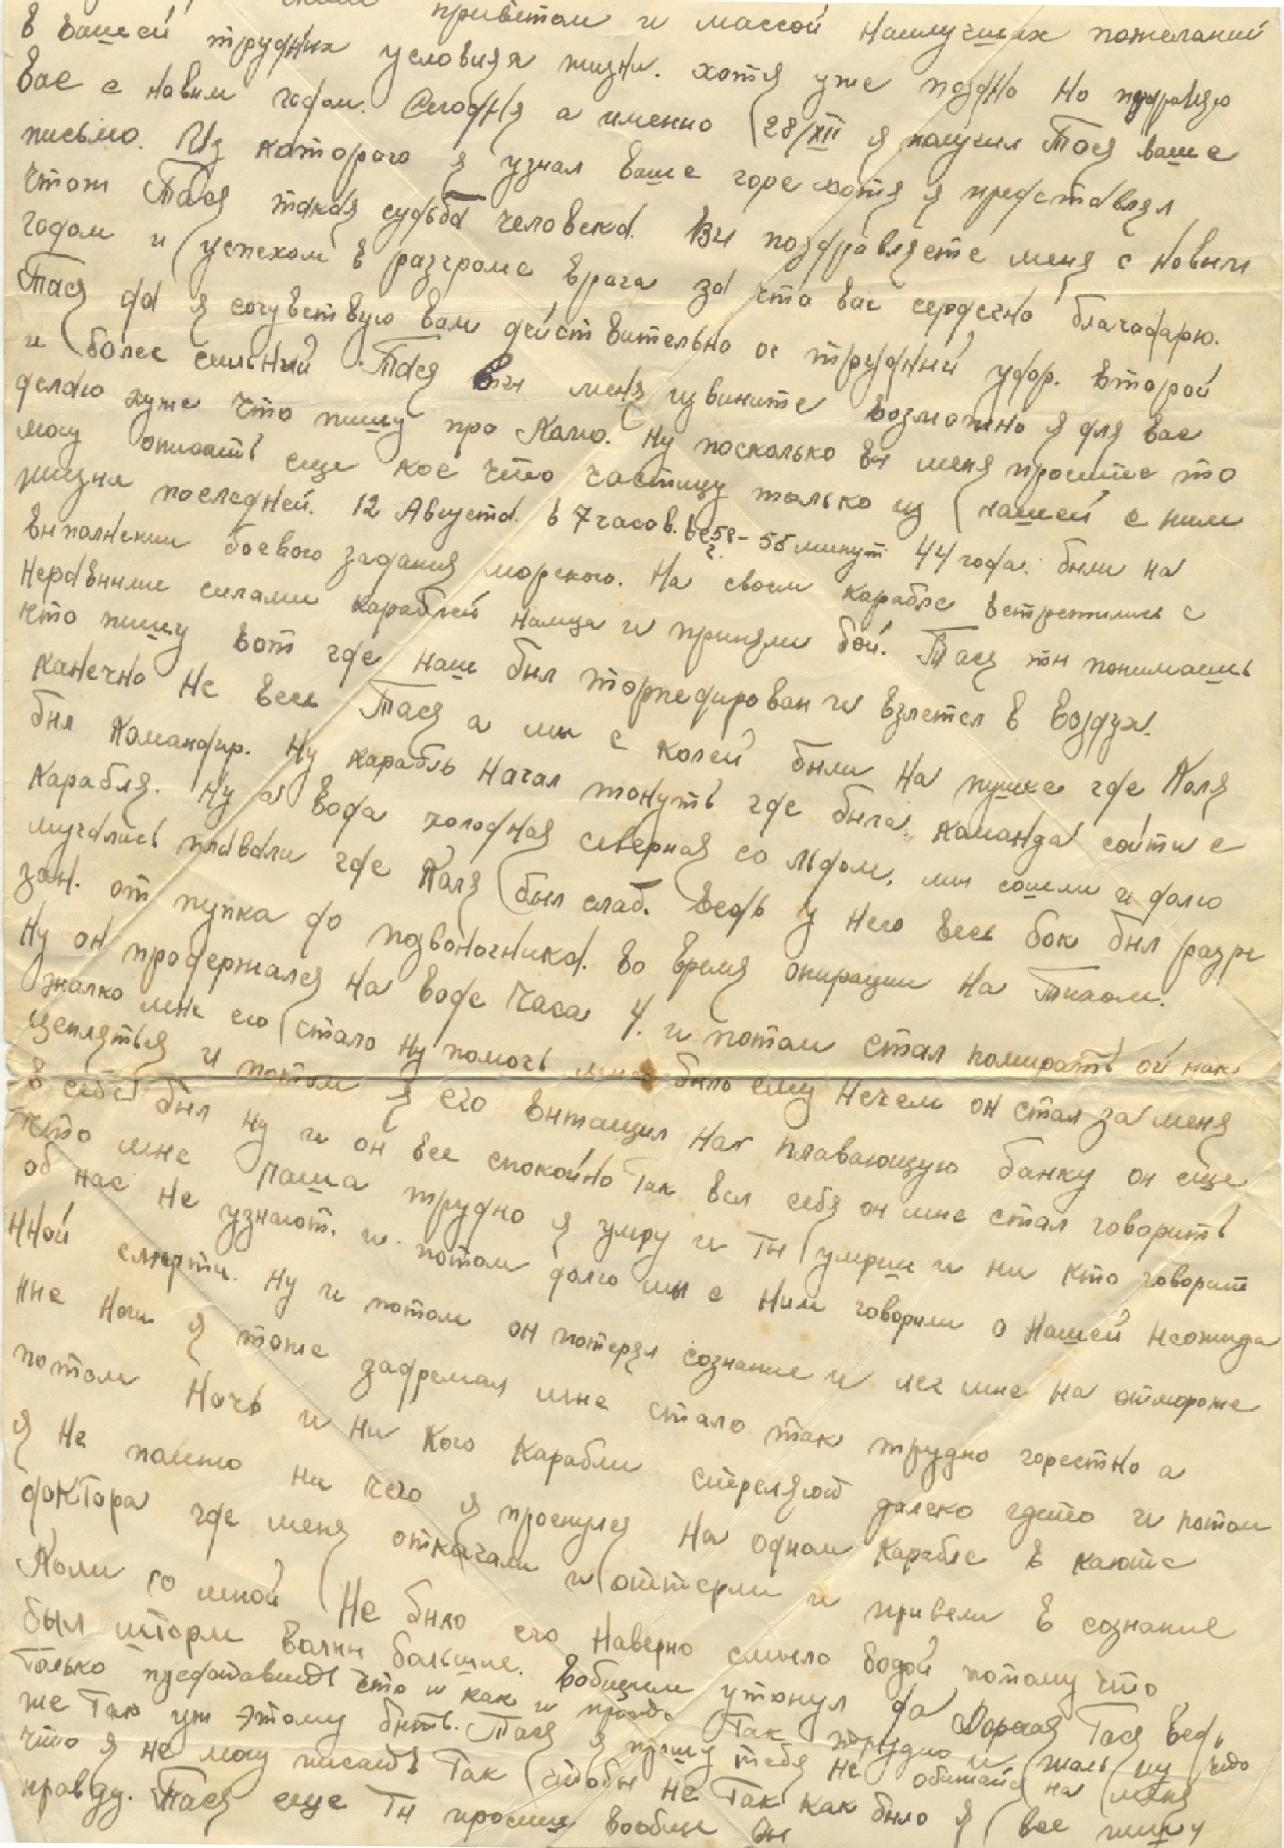 приветом и массой наилучших пожеланий
в вашей трудних условия жизни. хотя уже поздно но поздравляю
вас с новим годом. Сегодня а именно 28/XII я получил Тося ваше
письмо. Из которого я узнал ваше горе хотя я представлял
чтож Тася такая судьба человека. Ви поздравляете меня с новим
годом и успехом в разгроме врага за что вас сердечно благадарю.
Тася да я сочувствую вам действительно ос трудний удар. второй
и более сильний. Тася ви меня извините возможно я для вас
делаю хуже что пишу про Колю. Ну посколько ви меня просите то
могу описать еще кое что частицу только из нашей с ним
жизни последней. 12 Августа. в 7 часов. веч - 55 минут 44 года. были на
виполнении боевого задания морского. На своем карабле встретились с
неравними силами караблей немца и приняли бой. Тася ти понимаешь
что пишу вот где наш бил торпедирован и взлетел в воздух.
канечно не весь Тася а ми с колей были на пушке где Коля
бил Командир. Ну карабль начал тонуть где была команда сойти с
карабля. Ну а вода холодная северная со льдом, ми сошли и долго
мучались плавали где Коля был слаб. ведь у него весь бок бил разре
зан. от пупка до позвоночника. во время опирации на Тихом.
Ну он продержался на воде часа 4. и потом стал помирать ой как
жалко мне его стало ну помочь мне било ему нечем он стал за меня
цепляться и потом я его витащил на плавающую банку он еще
в себе бил ну и он все спокойно так вел себя он мне стал говорить
что мне Паша трудно я умру и ти умреш и ни кто говорит
об нас не узнают. и потом долго ми с ним говорили о нашей неожида
нной смерти. ну и потом он потерял сознание и лег мне на отмороже
нне ноги я тоже задремал мне стало так трудно горестно а
потом ночь и ни кого карабли стреляют далеко гдето и потом
я не помню ни чего я проснулся на одном карабле в каюте
доктора где меня откачали и оттерли и привели в сознание
Коли со мной не било его наверно смыло водой потому что
был шторм волни большие. вобщем утонул да Дорогая Тася ведь
только представить что и как и правда так трудно и жаль ну что
же так уж этому бить. Тася я прошу тебя не обижайся на меня
что я не могу писать так чтобы не так как было я все пишу
правду. Тася еще ти просиш вообще